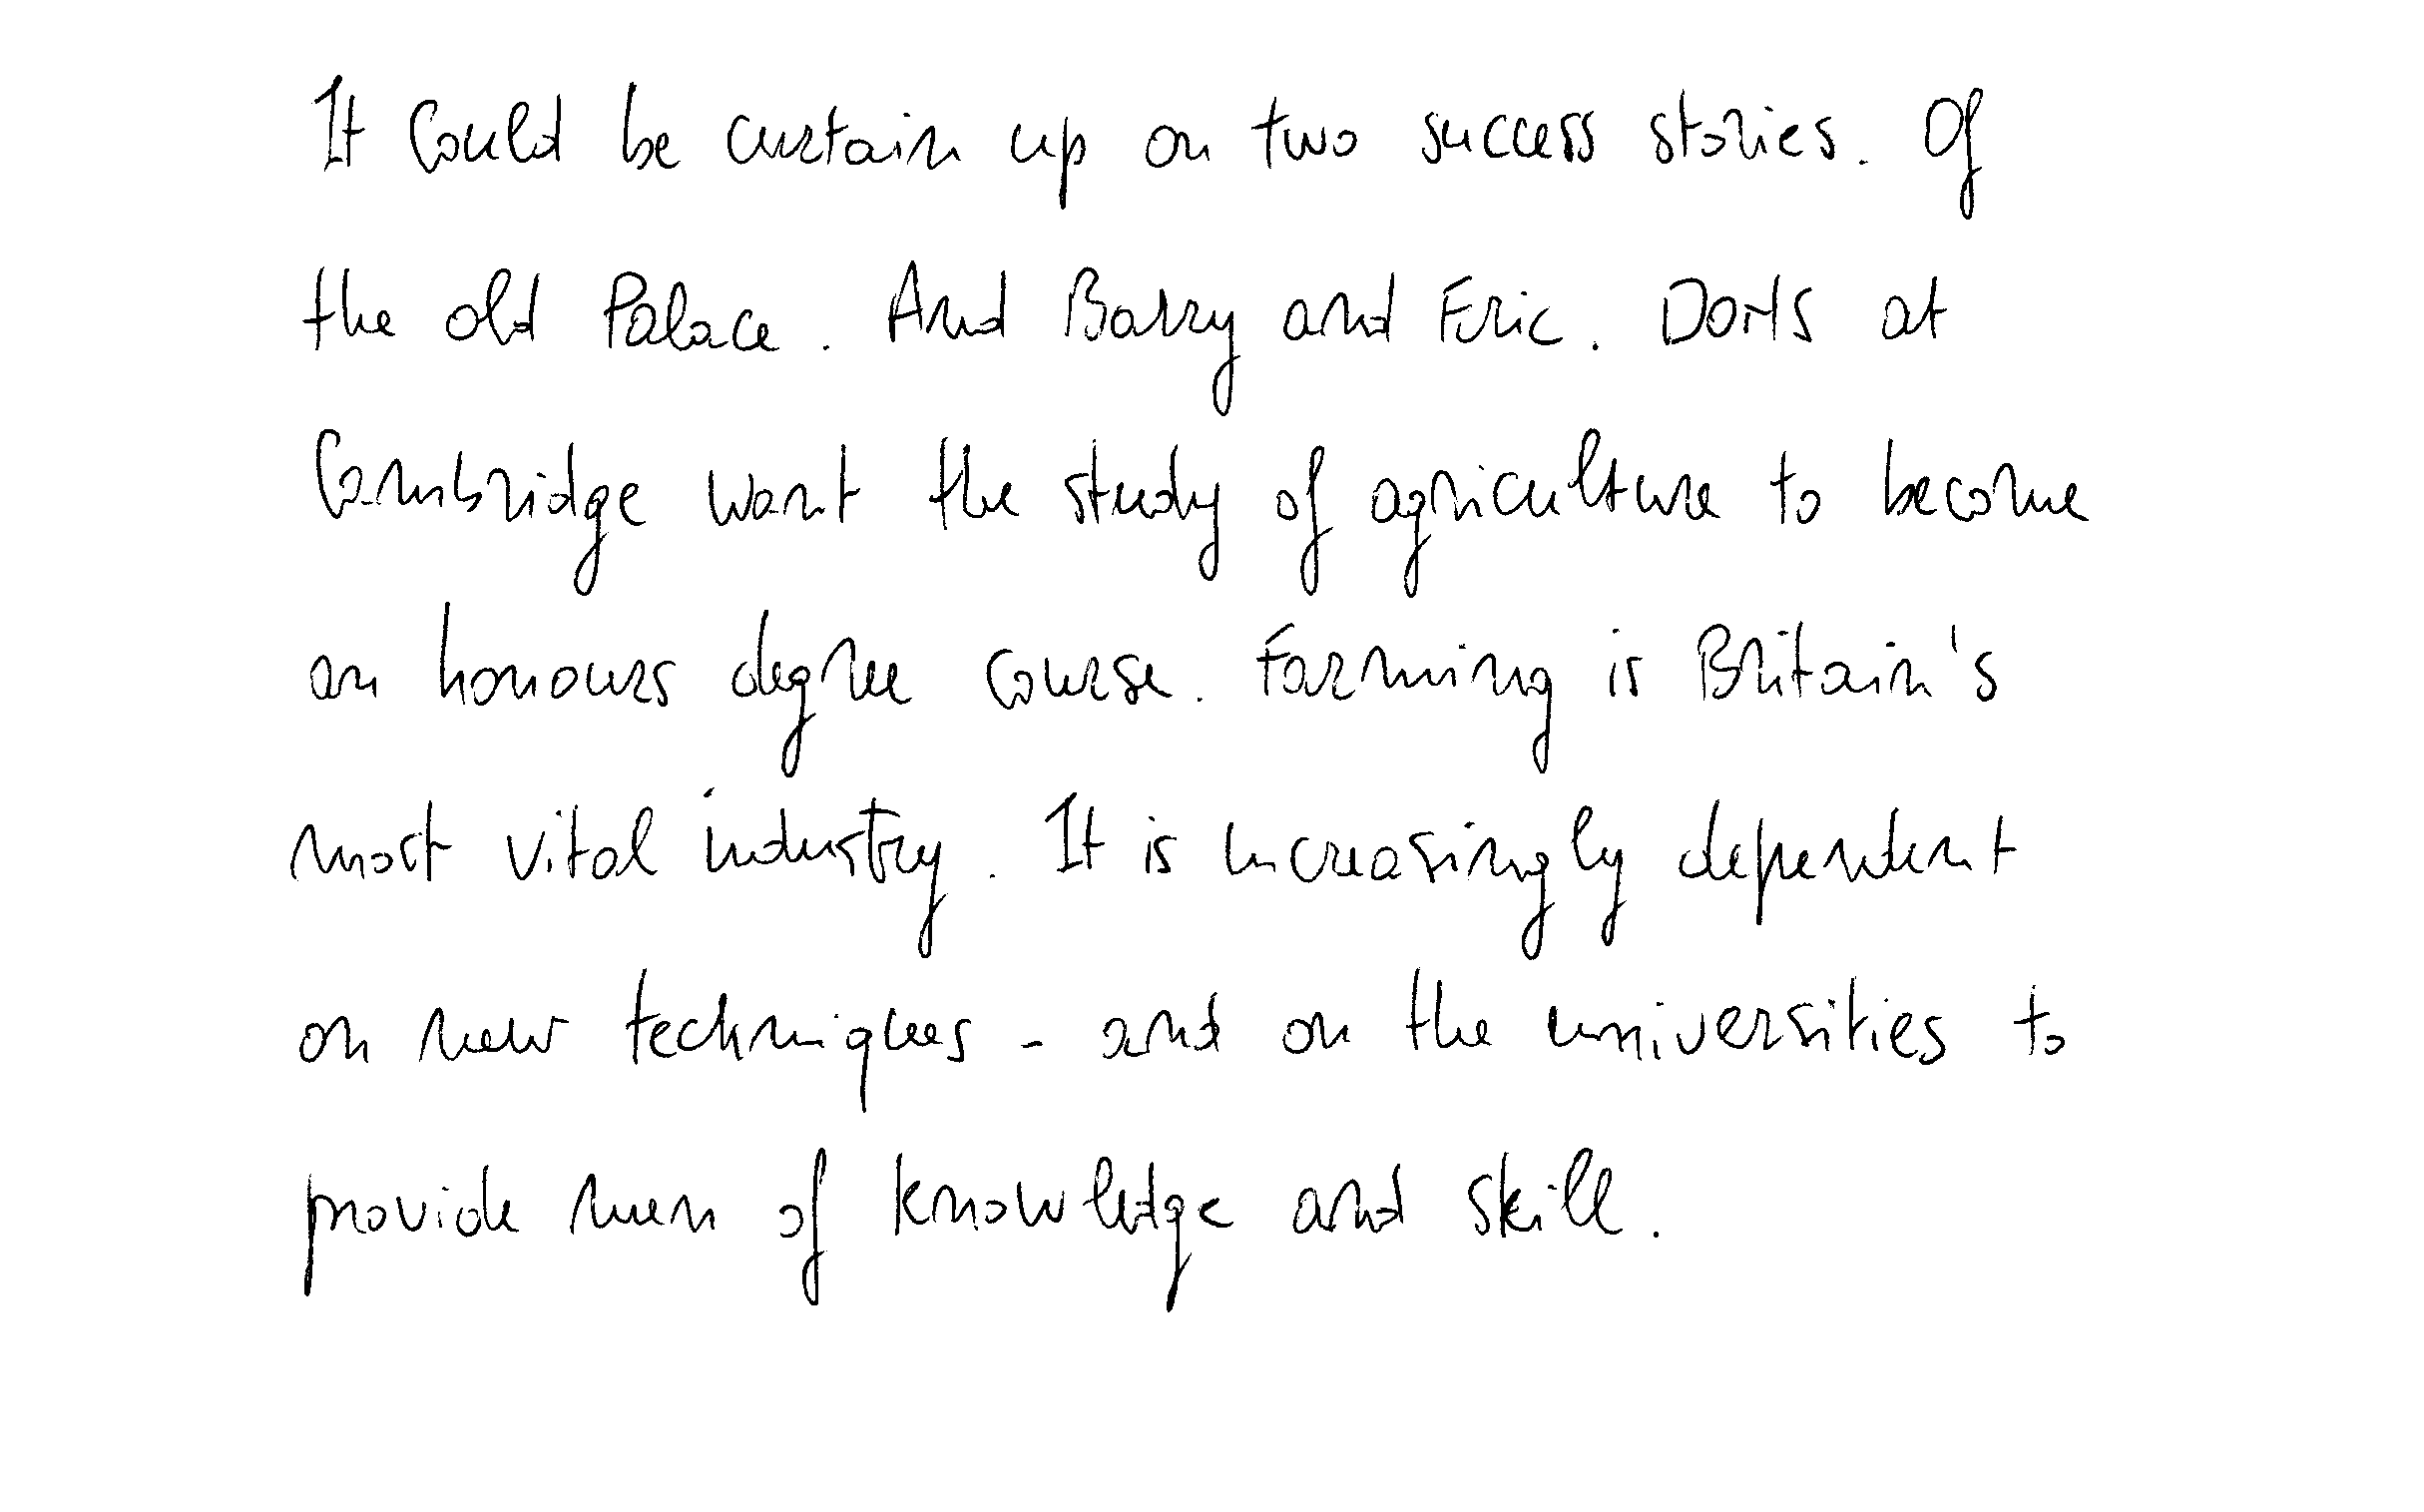 It could be curtain up on two success stories. Of
the old Palace. And Barry and Eric. DONS at
Cambridge want the study of agriculture to become
an honours degree course. Farming is Britain's
most vital industry. It is increasingly dependent
on new techniques - and on the universities to
provide men of knowledge and skill.